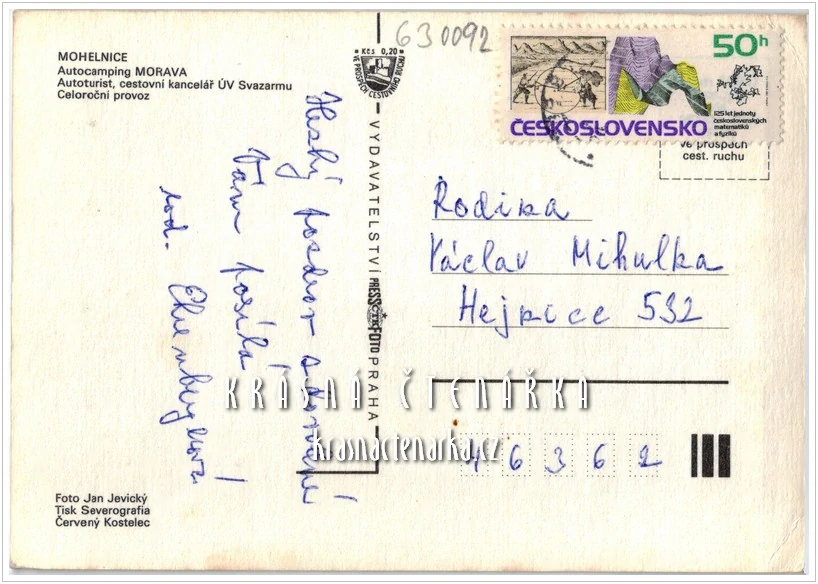 630092
MOHELNICE
Autocamping MORAVA
Autoturist, cestovní kancelář ÚV Svazarmu
Celoroční provoz
Kčs 0,20
VE PROSPĚCH CESTOVNÍHO RUCHU
50h
125 let jednoty
československých
matematiků
a fyziků
ČESKOSLOVENSKO
ve prospěch
cest. ruchu
VYDAVATELSTVÍ PRESSFOTO PRAHA
Hezký pozdrav z dovolené
Vám posílá
rod.
Rodina
Václav Mihulka
Hejnice 532
46362
KRÁSNÁ ČTENÁŘKA
krasnactenarka.cz
Foto Jan Jevický
Tisk Severografia
Červený Kostelec